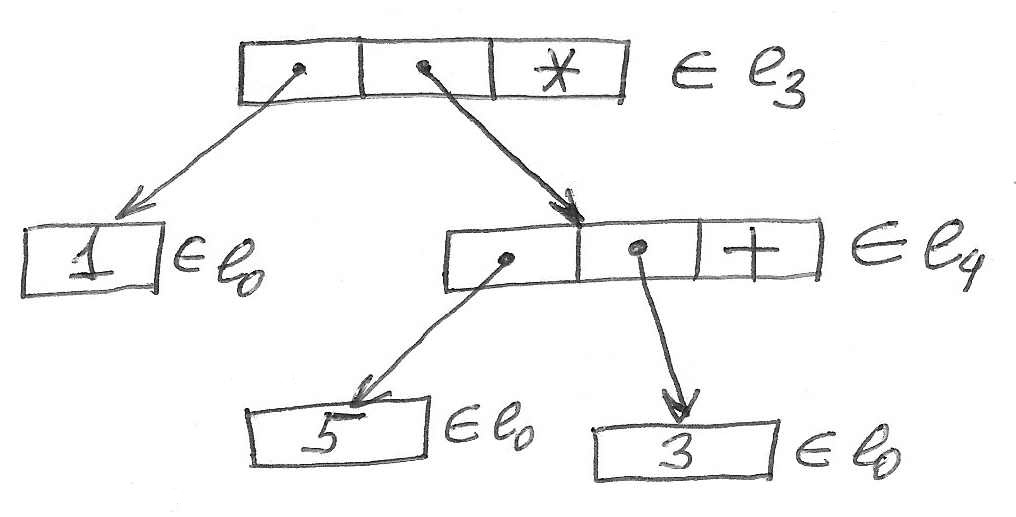 * ∈ e₃
1 ∈ e₀ + ∈ e₄
5 ∈ e₀
3 ∈ e₀